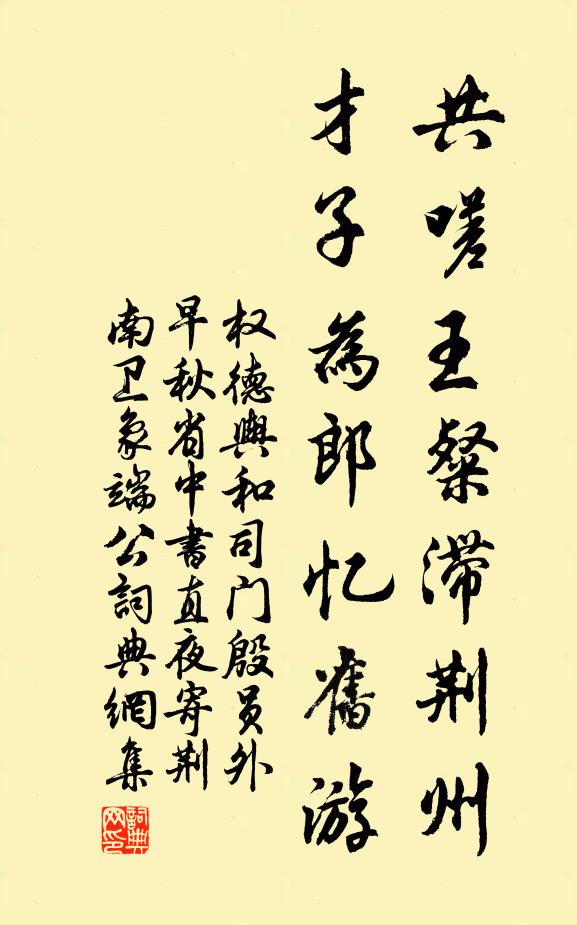 共嗟王粲滞荆州
才子為郎忆舊游
权德輿和司门殷员外
早秋省中書直夜寄荆
南卫象端公詞典網集
詞典网印